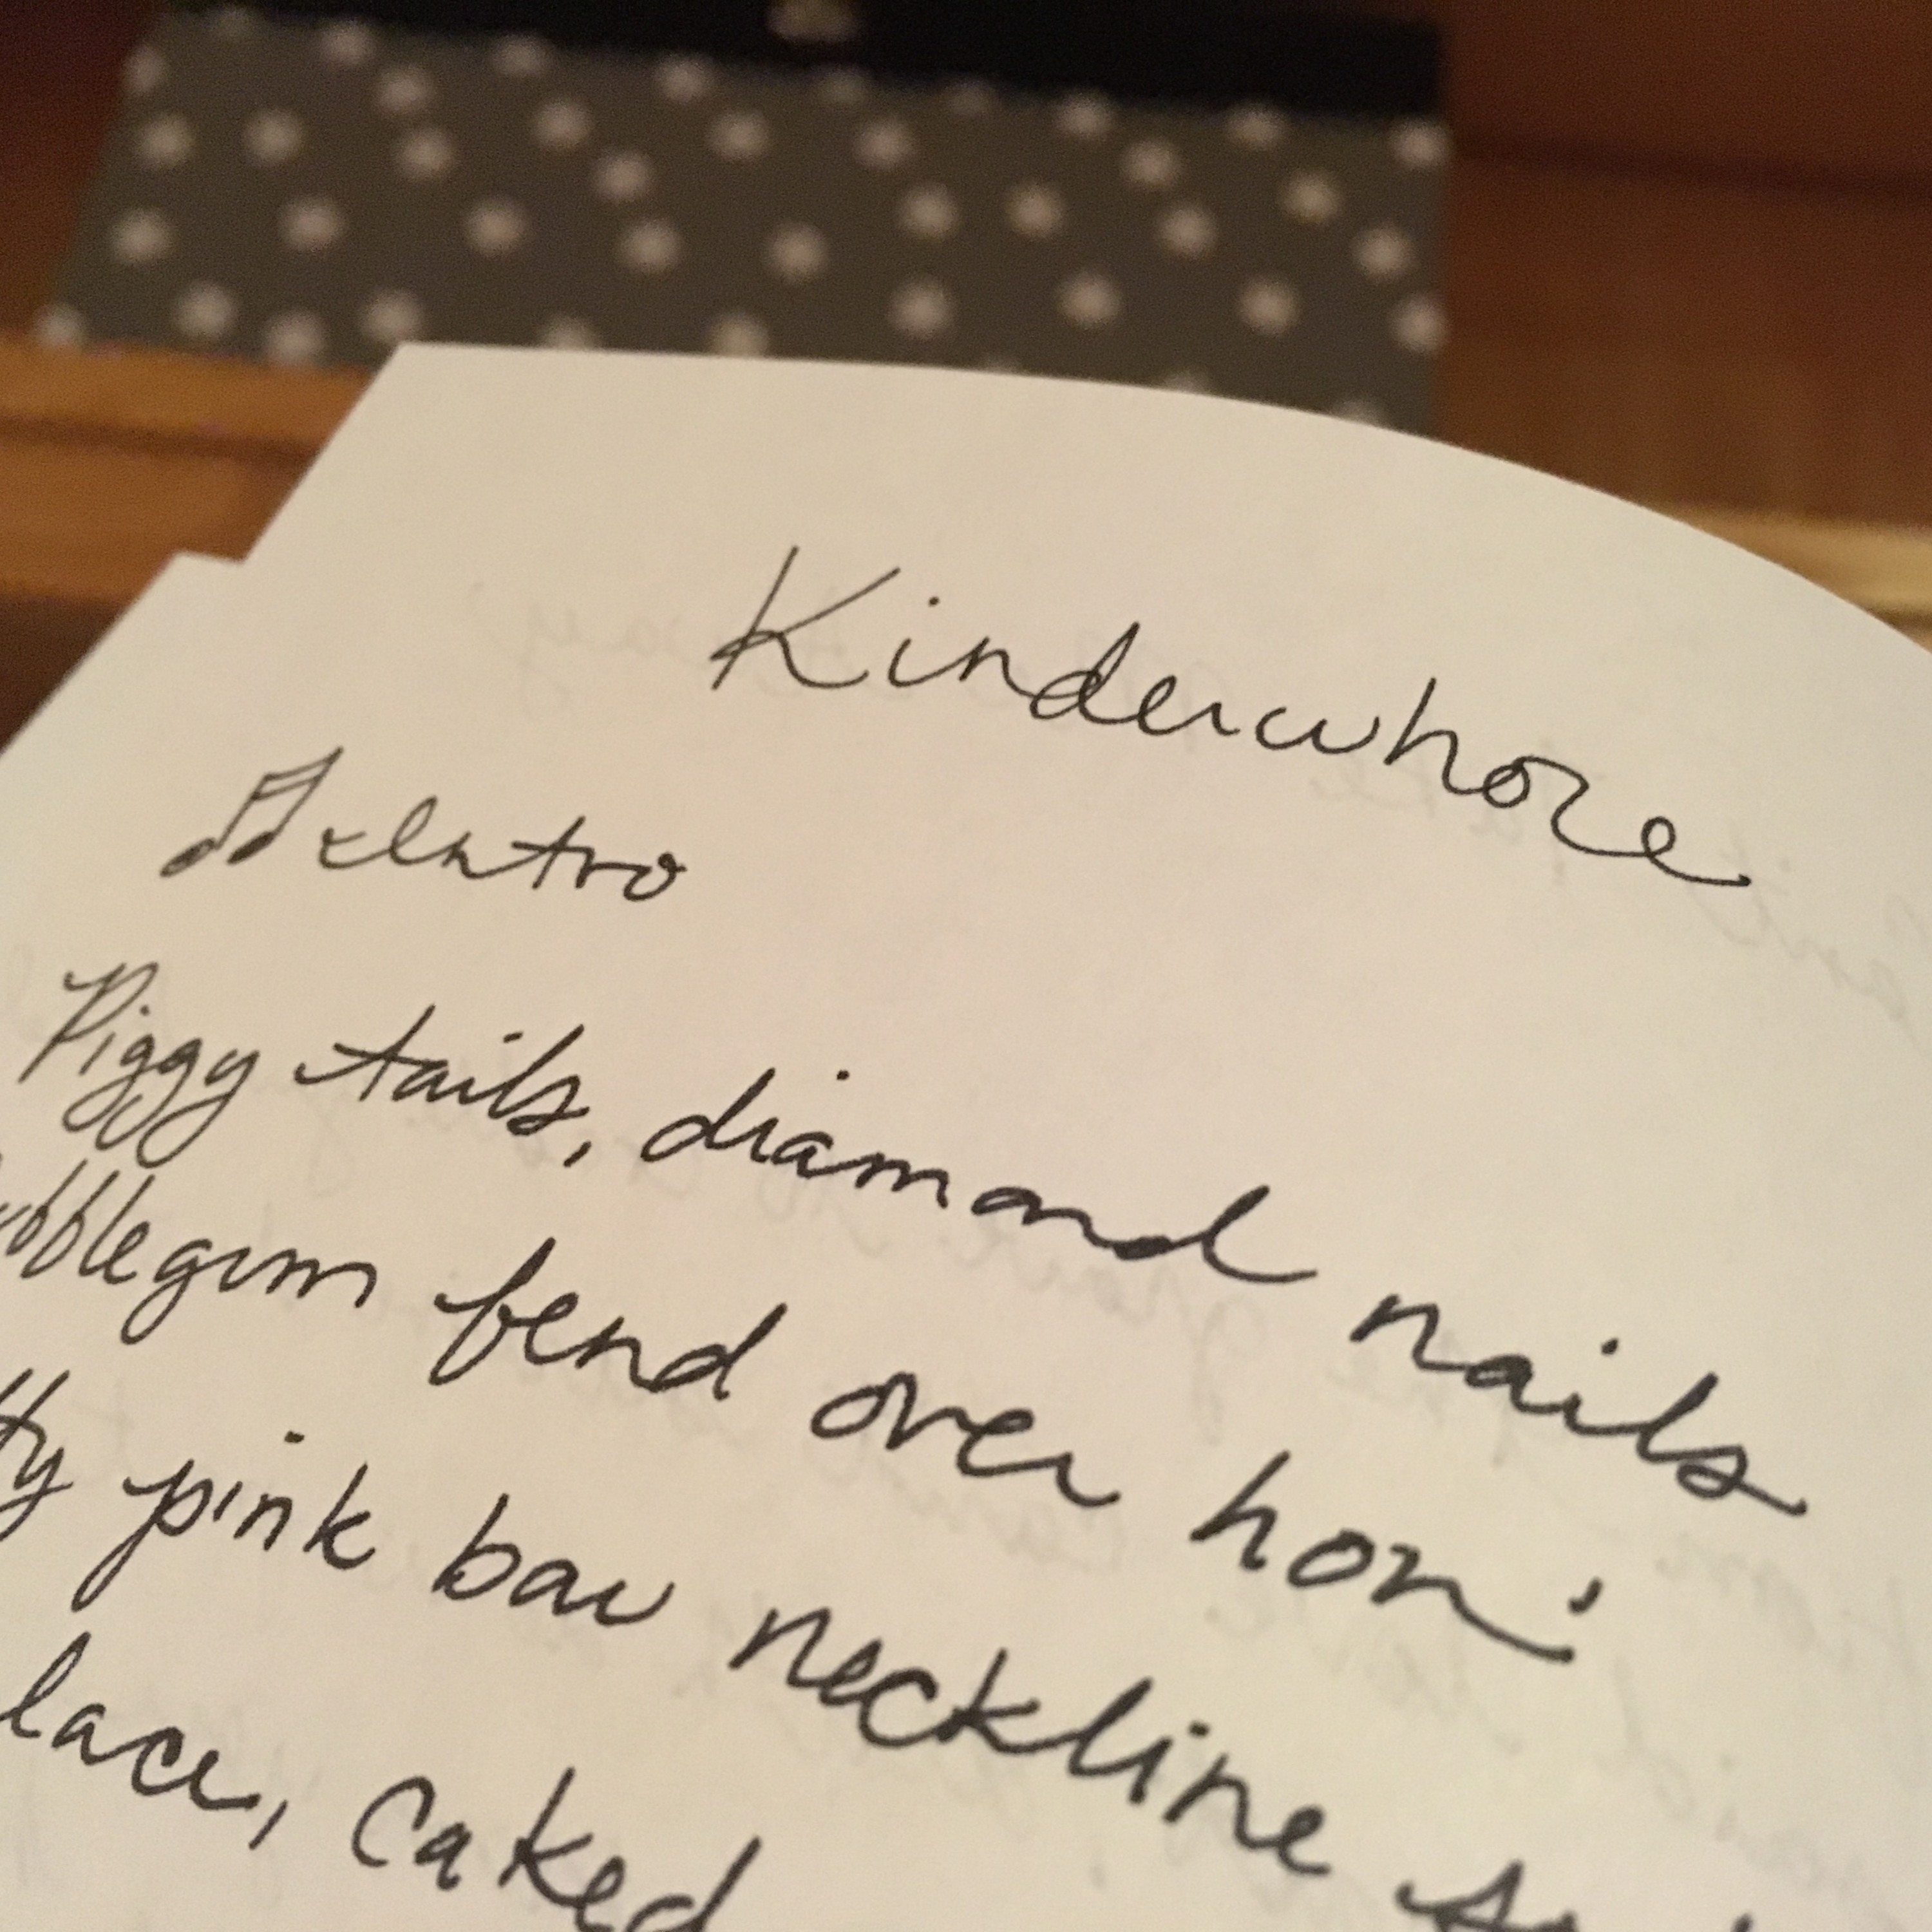 Kinderwhore
Intro
Piggy tails, diamond nails
bend over hon'
pink bow neckline
lace, caked